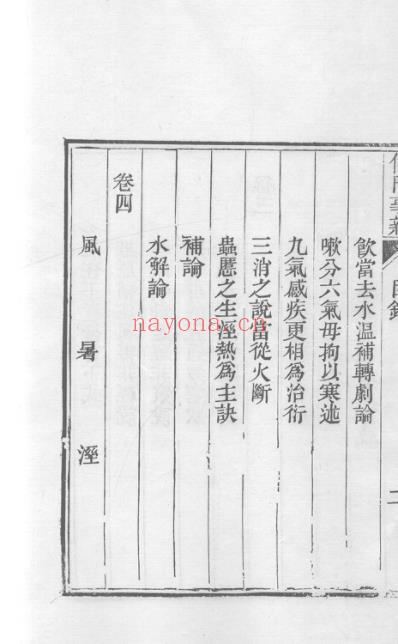 飲當去水温補轉劇論
嗽分六氣毋拘以寒述
九氣感疾更相爲治衍
三消之說當從火斷
蟲䘌之生溼熱爲主訣
補論
水解論
卷四
風 暑 溼
nayona.cn